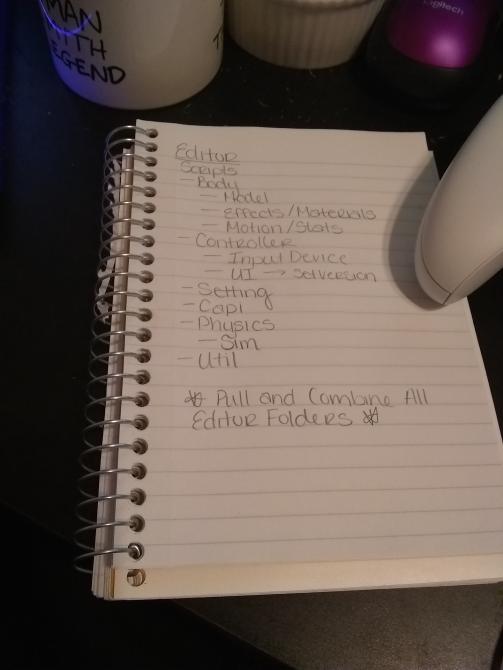 MAN
WITH
LEGEND
logitech
Editor
Scripts
- Body
- Model
- Effects/Materials
- Motion/Stats
- Controller
- Input Device
- UI →
- Setting
- Capi
- Physics
- Sim
- Util
* Pull and Combine All
Editor Folders *